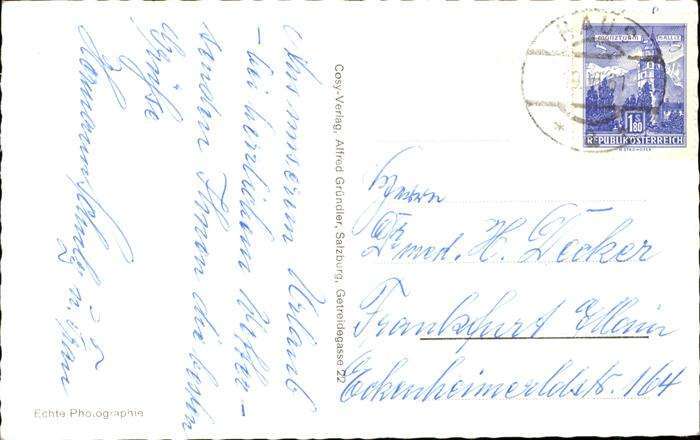 Aus unserem Urlaub
- bei herrlichem Wetter -
senden Ihnen die besten
Grüße
Hermann u. Frau
Cosy-Verlag, Alfred Gründler, Salzburg, Getreidegasse 22
Echte Photographie
HAUS
MÜNZTURM HALL I.T.
1 S 80
REPUBLIK ÖSTERREICH
Herrn
Dr. med. H. Decker
Frankfurt / Main
Eckenheimerldstr. 164